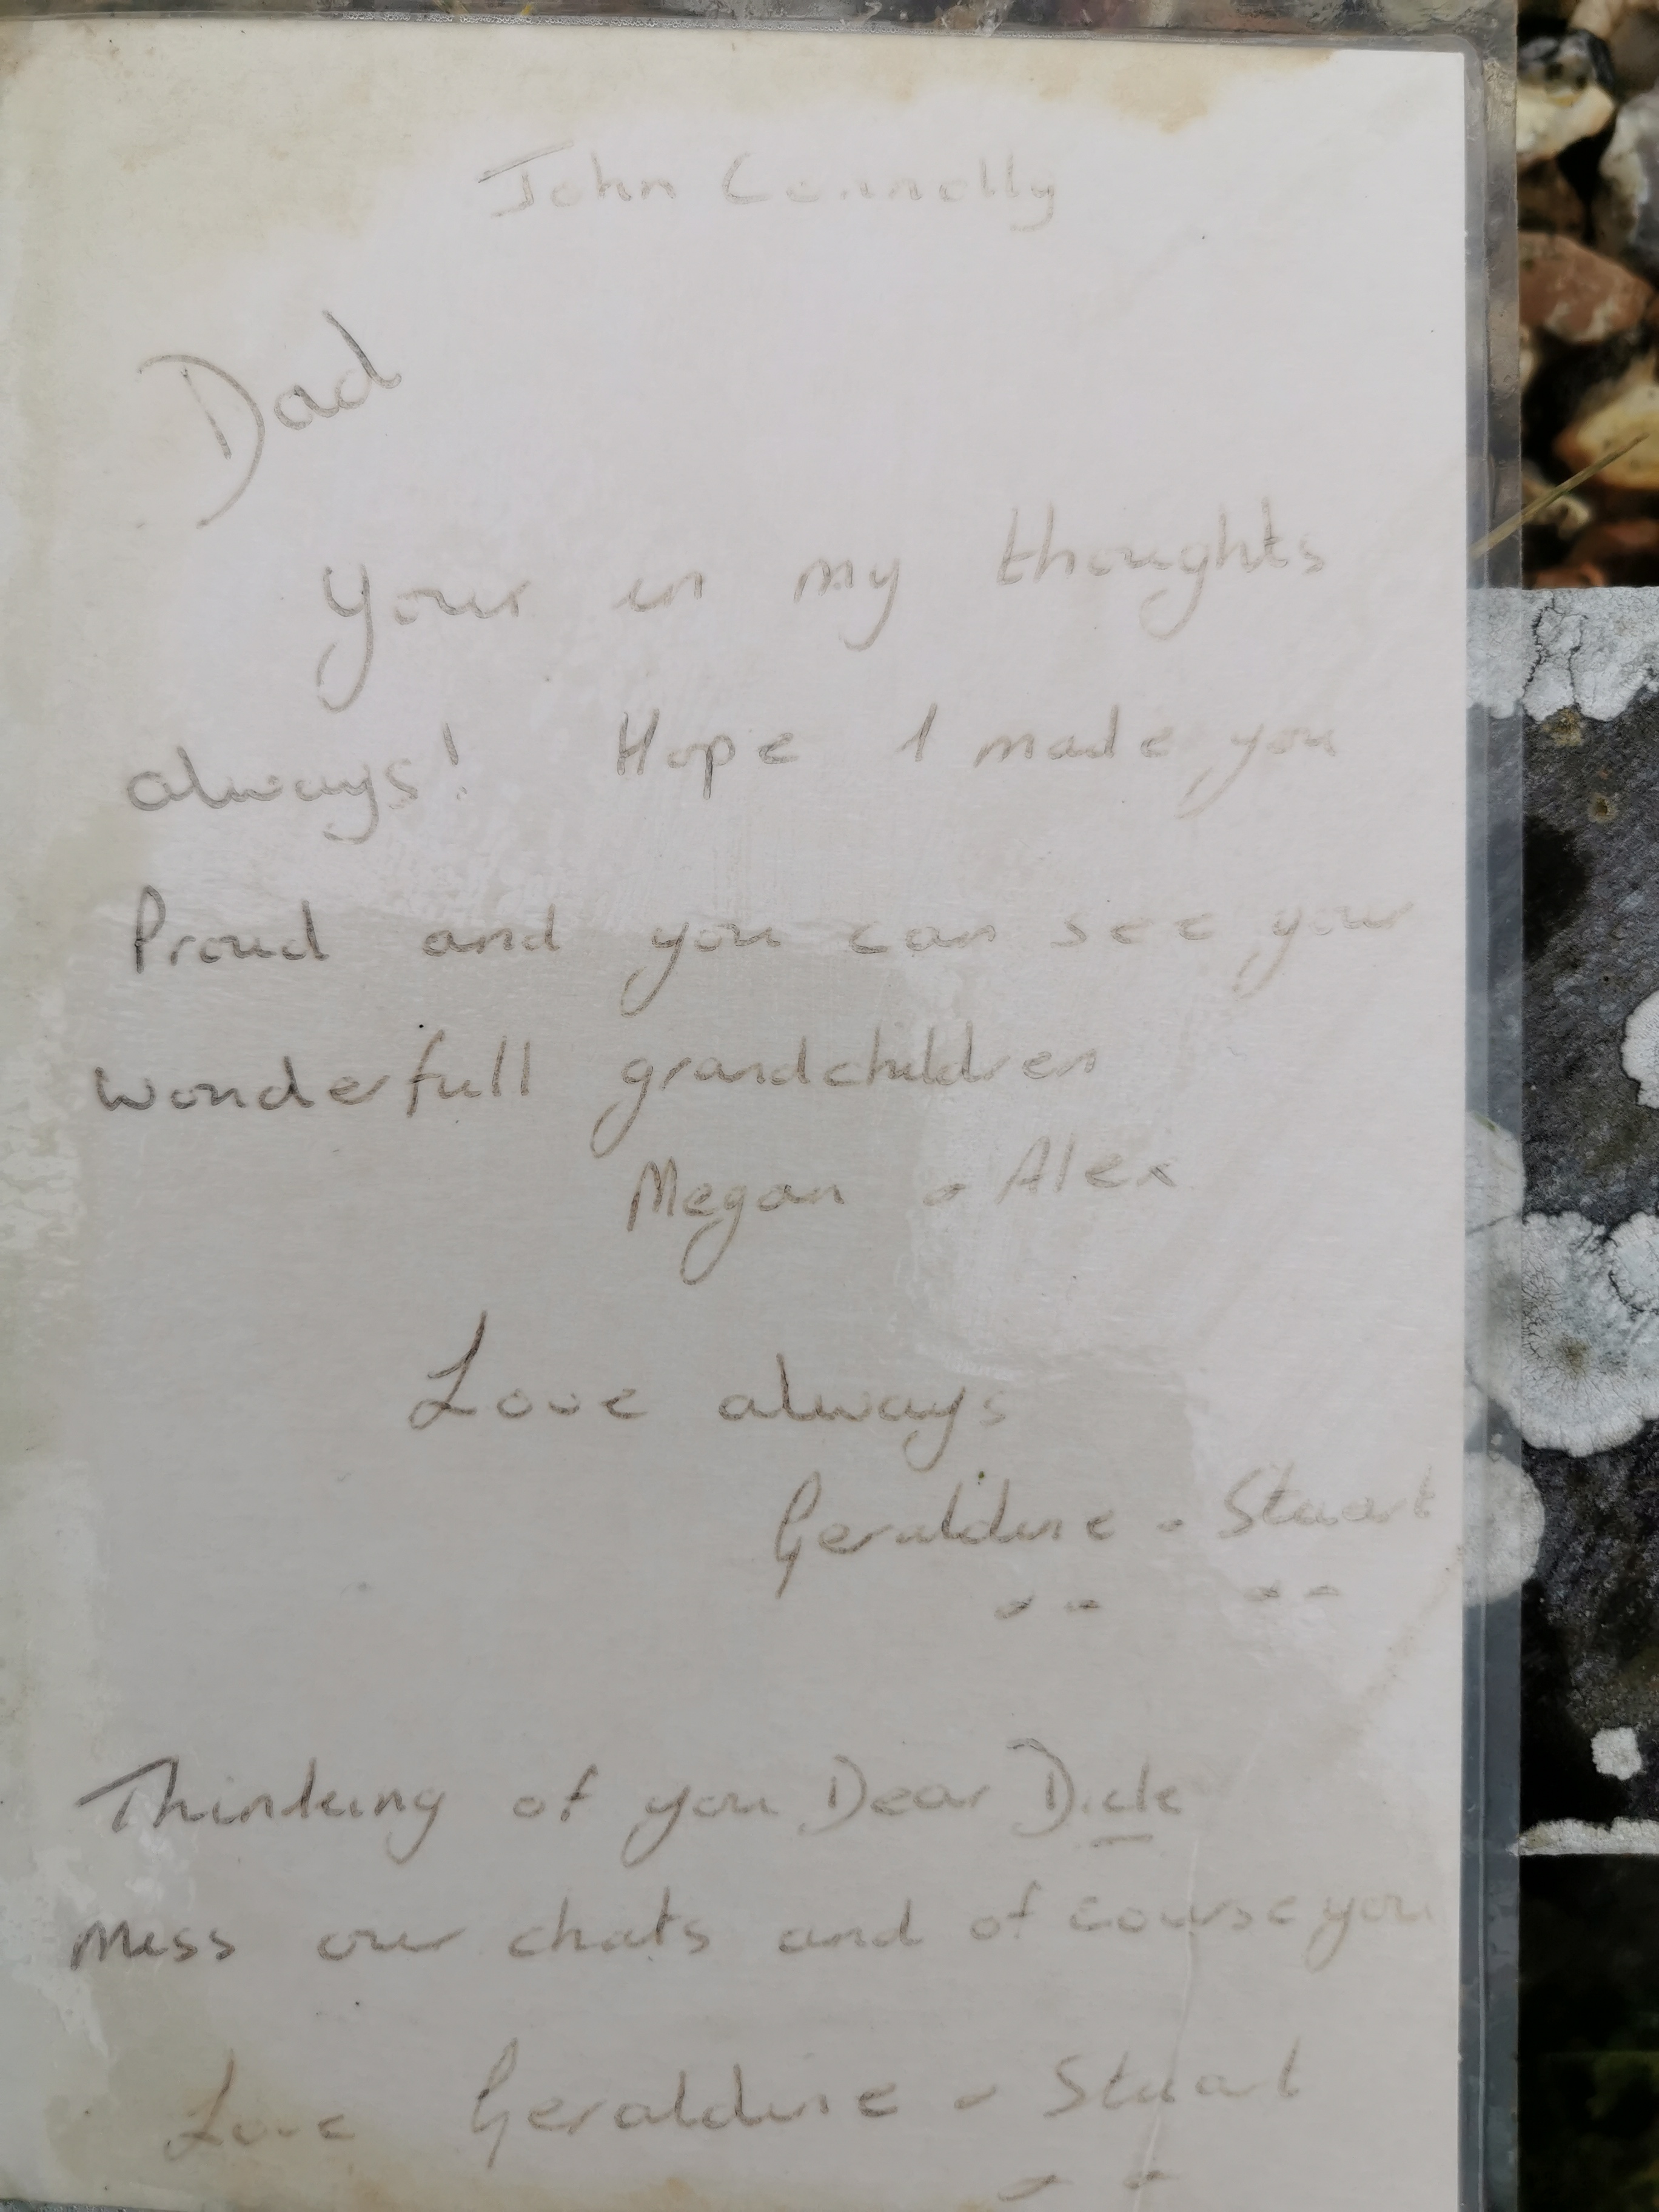 John Connolly
Dad
Your in my thoughts
always! Hope I made you
Proud and you can see your
wonderfull grandchildren
Megan & Alex
Love always
Geraldine & Stuart
Thinking of you Dear Dick
Miss our chats and of course you
Love Geraldine & Stuart